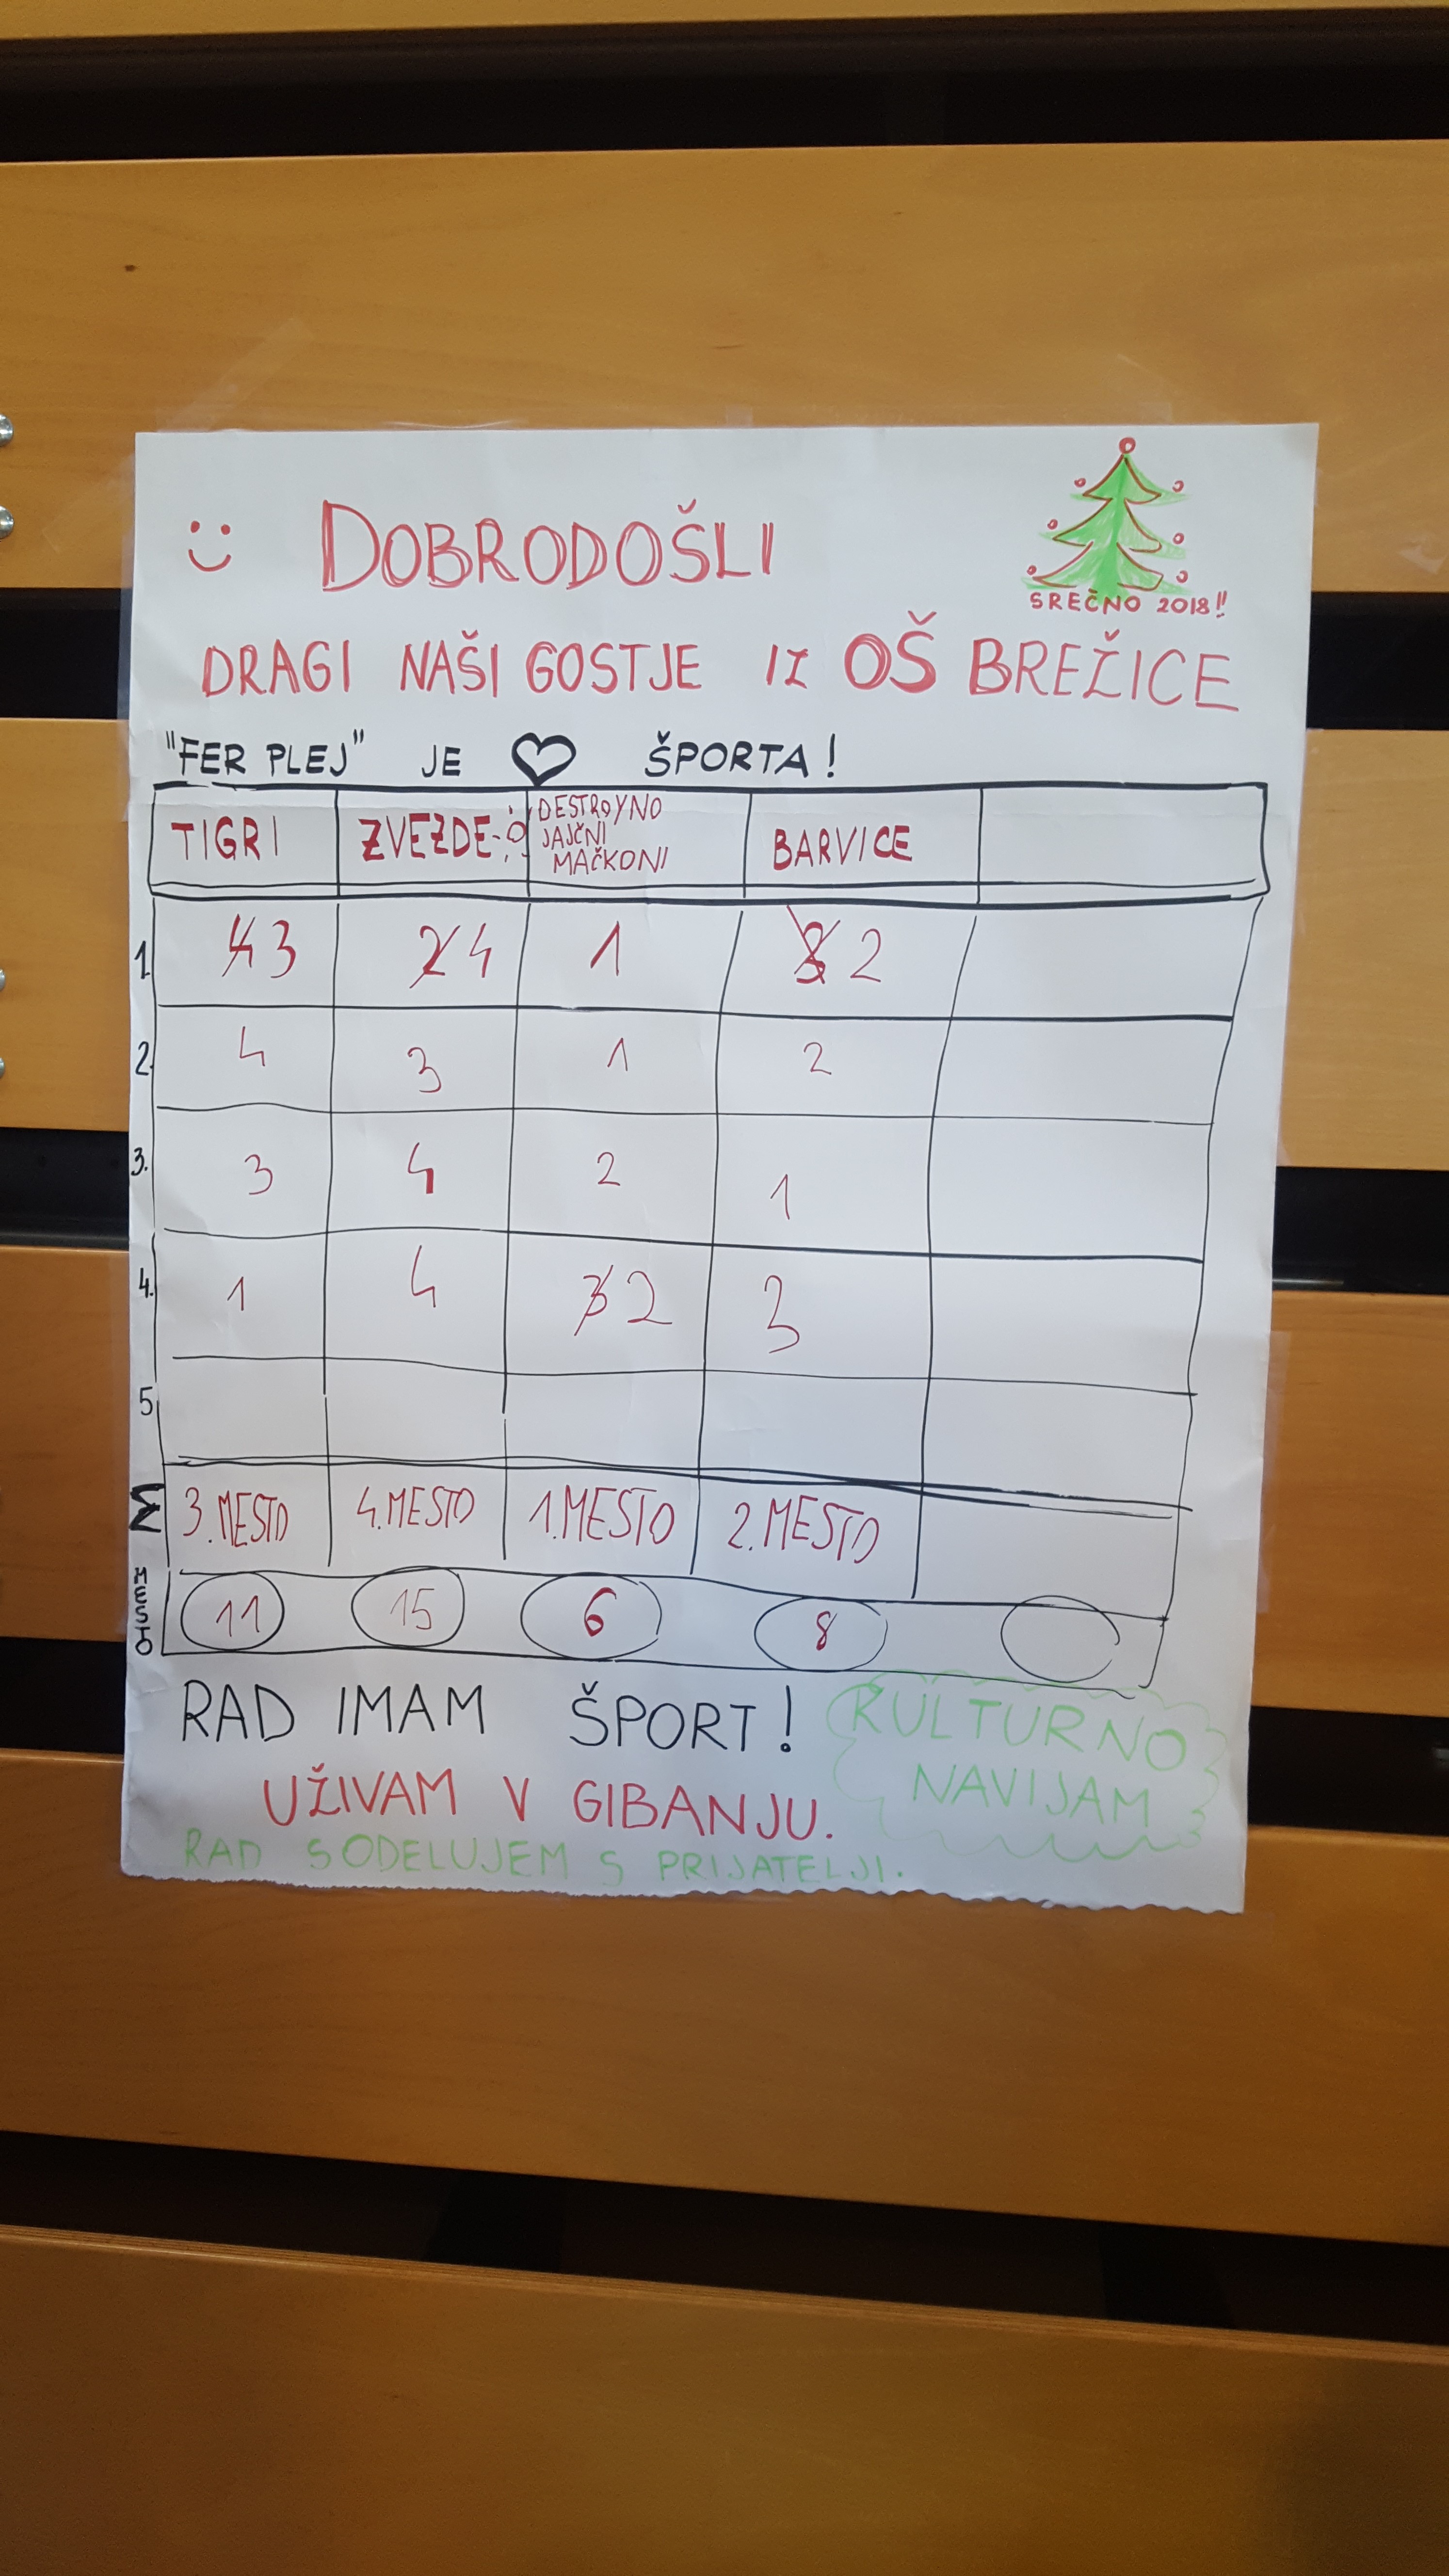 DOBRODOŠLI
SREČNO 2018!!
DRAGI NAŠI GOSTJE IZ OŠ BREŽICE
"FER PLEJ" JE ŠPORTA!
TIGRI ZVEZDE DESTROYNO JAJČNI MAČKONI BARVICE
1. 4 3 2 4 1 3 2
2. 4 3 1 2
3. 3 4 2 1
4. 1 4 3 2 3
5
Σ 3. MESTO 4. MESTO 1. MESTO 2. MESTO
MESTO 11 15 6 8
RAD IMAM ŠPORT!
KULTURNO
NAVIJAM
UŽIVAM V GIBANJU.
RAD SODELUJEM S PRIJATELJI.